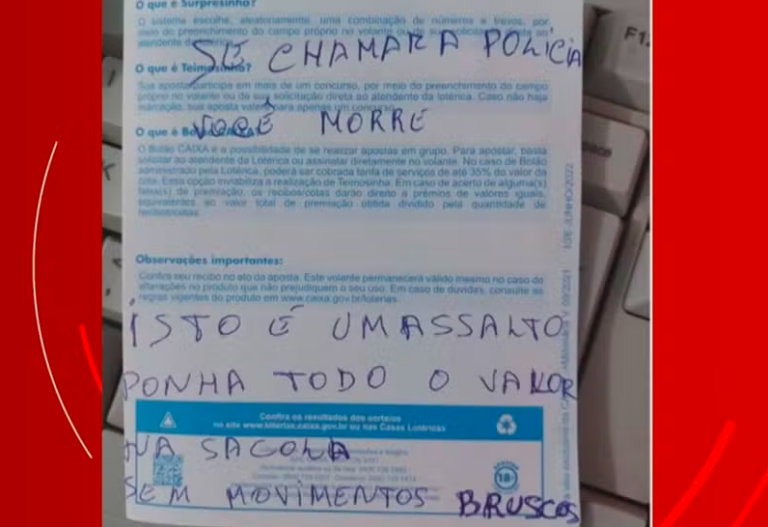 O que é Surpresinha?
O sistema escolhe, aleatoriamente, uma combinação de números e trevos, por
meio do preenchimento do campo próprio no volante ou de sua solicitação direta ao
atendente da
SE CHAMAR A POLICIA
O que é Teimosinha?
Sua aposta participa em mais de um concurso, por meio do preenchimento do campo
próprio no volante ou de sua solicitação direta ao atendente da lotérica. Caso não haja
marcação, sua aposta valerá para apenas um concurso.
VOCÊ MORRE
O que é Bolão CAIXA?
O Bolão CAIXA é a possibilidade de se realizar apostas em grupo. Para apostar, basta
solicitar ao atendente da Lotérica ou assinalar diretamente no volante. No caso de Bolão
administrado pela Lotérica, poderá ser cobrada tarifa de serviços de até 35% do valor da
cota. Essa opção inviabiliza a realização de Teimosinha. Em caso de acerto de alguma(s)
faixa(s) de premiação, os recibos/cotas darão direito a prêmios de valores iguais,
equivalentes ao valor total de premiação obtida dividido pela quantidade de
recibos/cotas.
Observações importantes:
Confira seu recibo no ato da aposta. Este volante permanecerá válido mesmo no caso de
alterações no produto que não prejudiquem o seu uso. Em caso de dúvidas, consulte as
regras vigentes do produto em www.caixa.gov.br/loterias.
ISTO É UM ASSALTO
PONHA TODO O VALOR
Confira os resultados dos sorteios
no site www.loterias.caixa.gov.br ou nas Casas Lotéricas
NA SACOLA
SEM MOVIMENTOS BRUSCOS
18+
F1
K